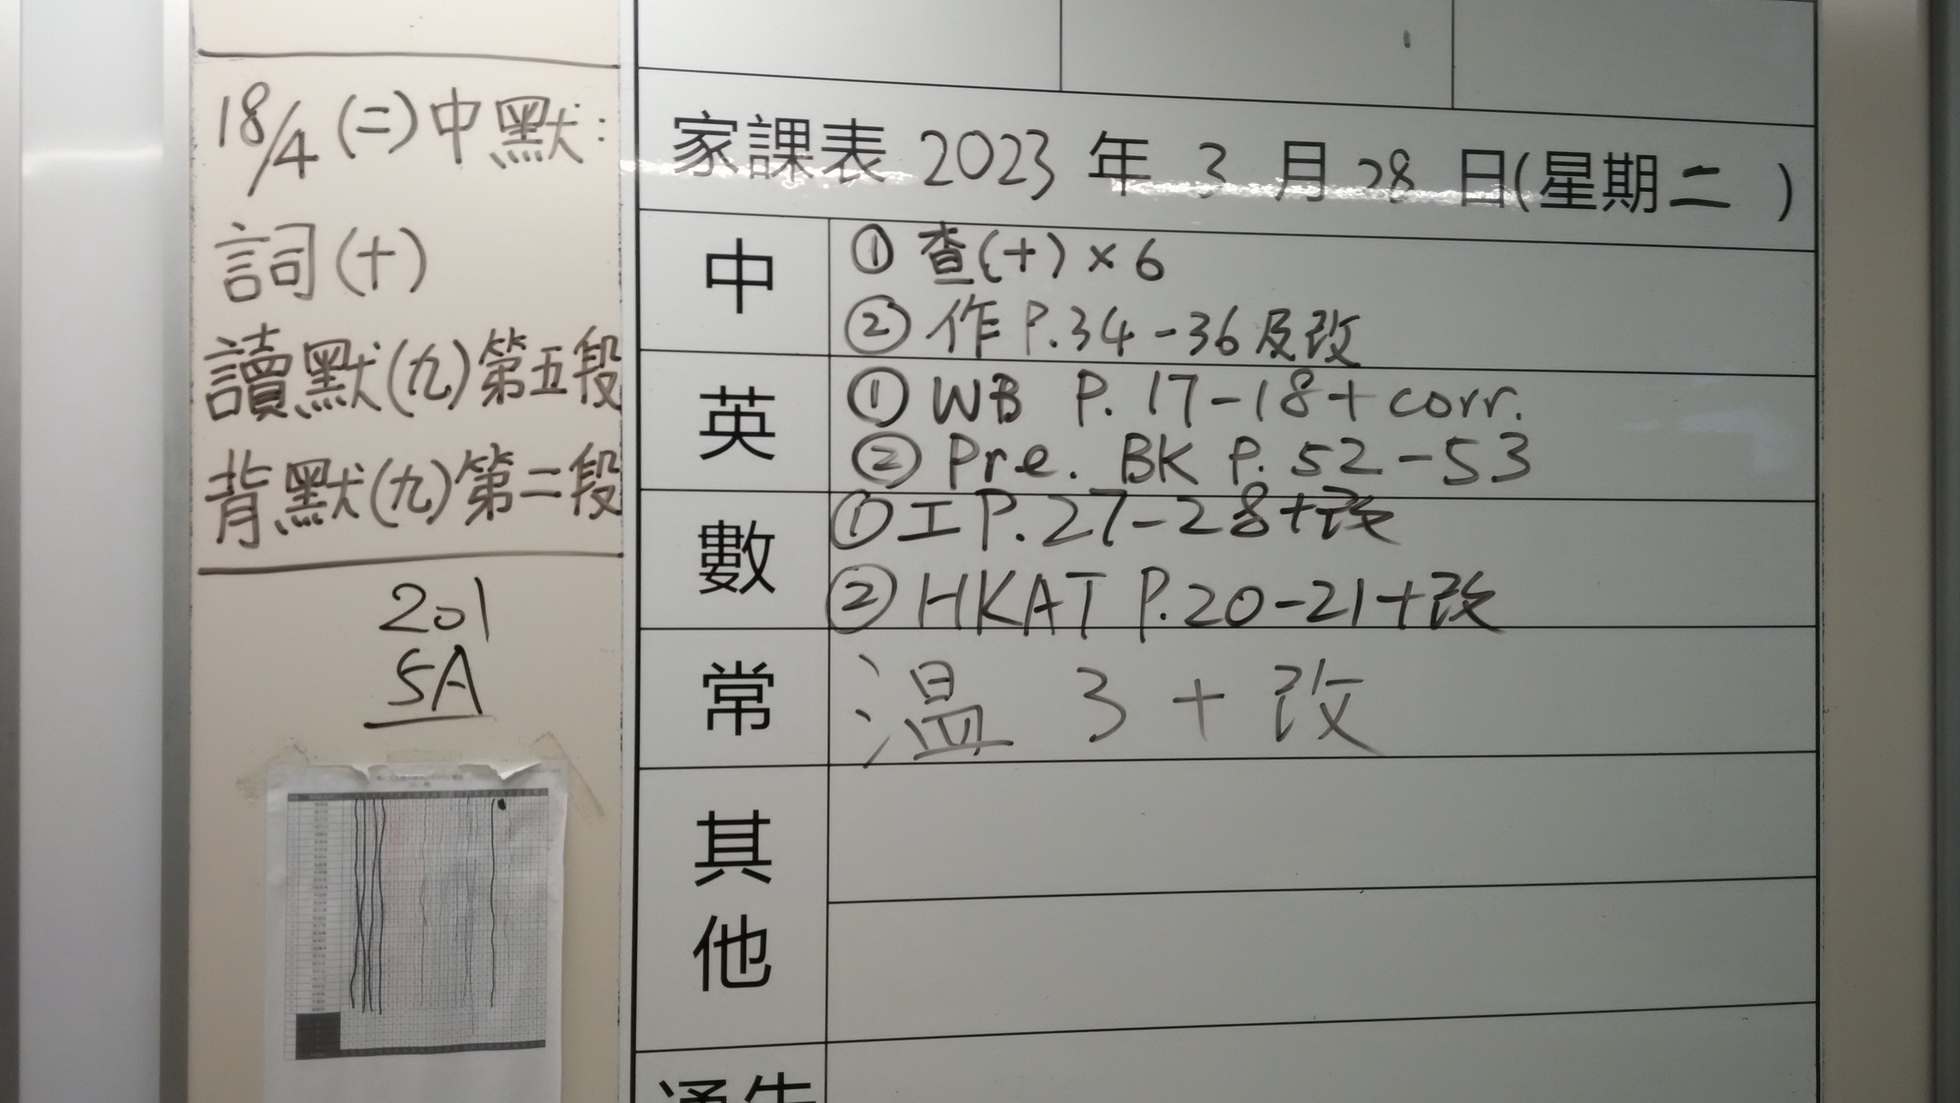 18/4 (二) 中默:
詞 (十)
讀默(九)第五段
背默(九)第二段
201
5A
家課表 2023 年 3 月 28 日(星期二 )
中
① 查(十) × 6
② 作 P.34-36 及改
英
① WB P. 17-18 + corr.
② Pre. BK P. 52-53
數
① 工 P. 27-28 + 改
② HKAT P.20-21 + 改
常
溫 3 + 改
其他
通告